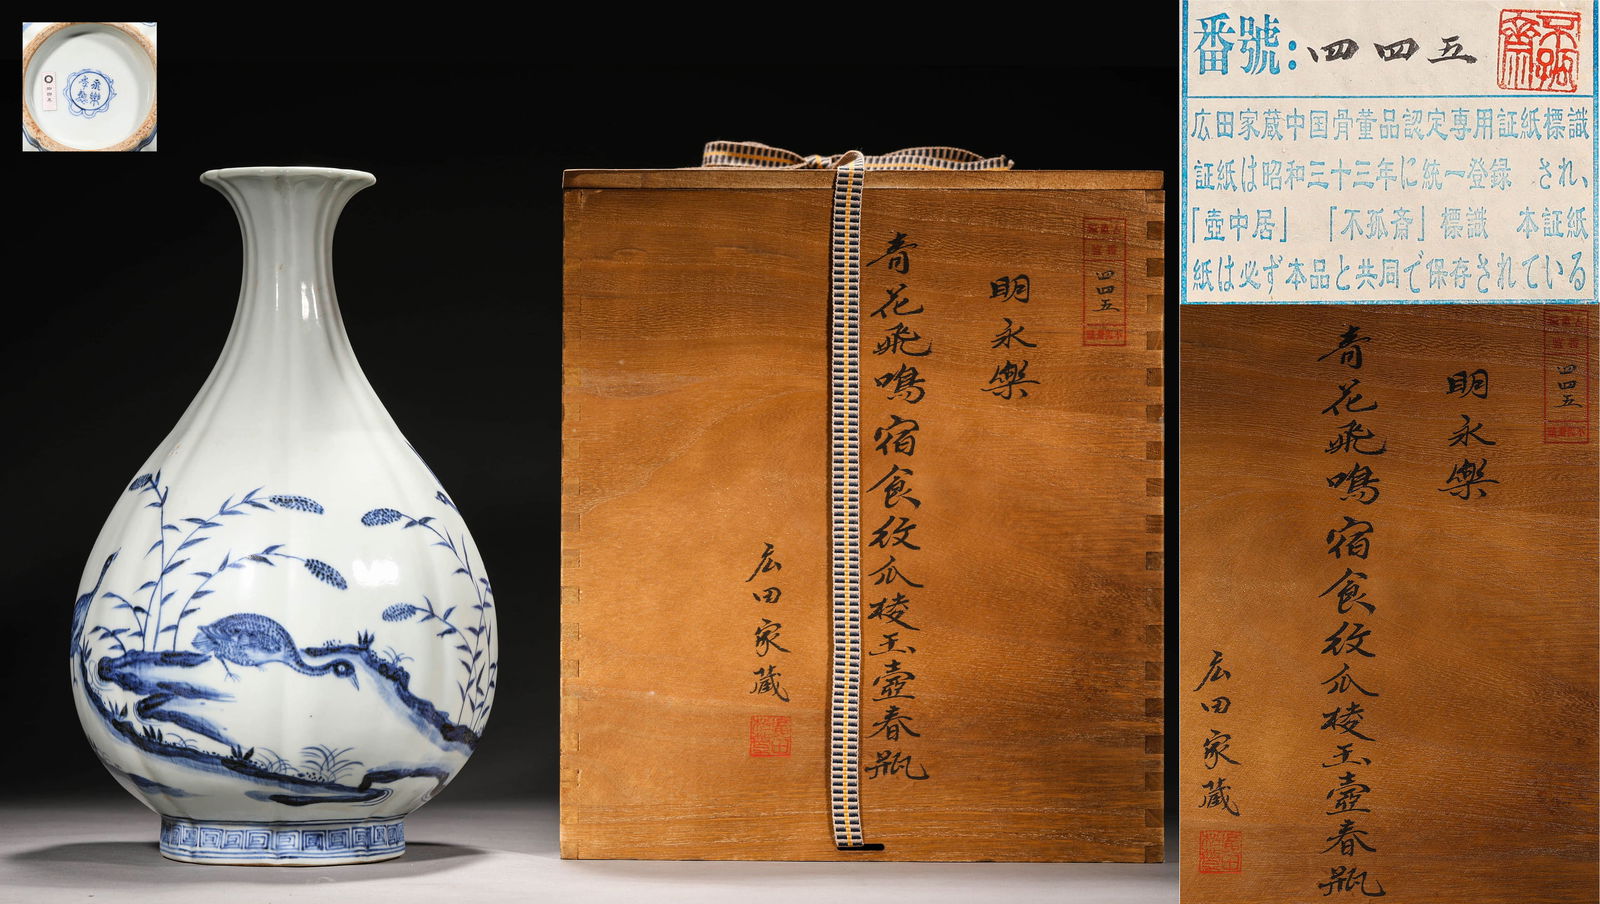 永樂
年製
四四五
明永樂
青花飛鳴宿食紋瓜棱玉壺春瓶
広田家蔵
番號:四四五
不孤斎
広田家蔵中国骨董品認定専用証紙標識
証紙は昭和三十三年に統一登録 され、
「壺中居」 「不孤斎」標識 本証紙
紙は必ず本品と共同で保存されている
四四五
明永樂
青花飛鳴宿食紋瓜棱玉壺春瓶
広田家蔵